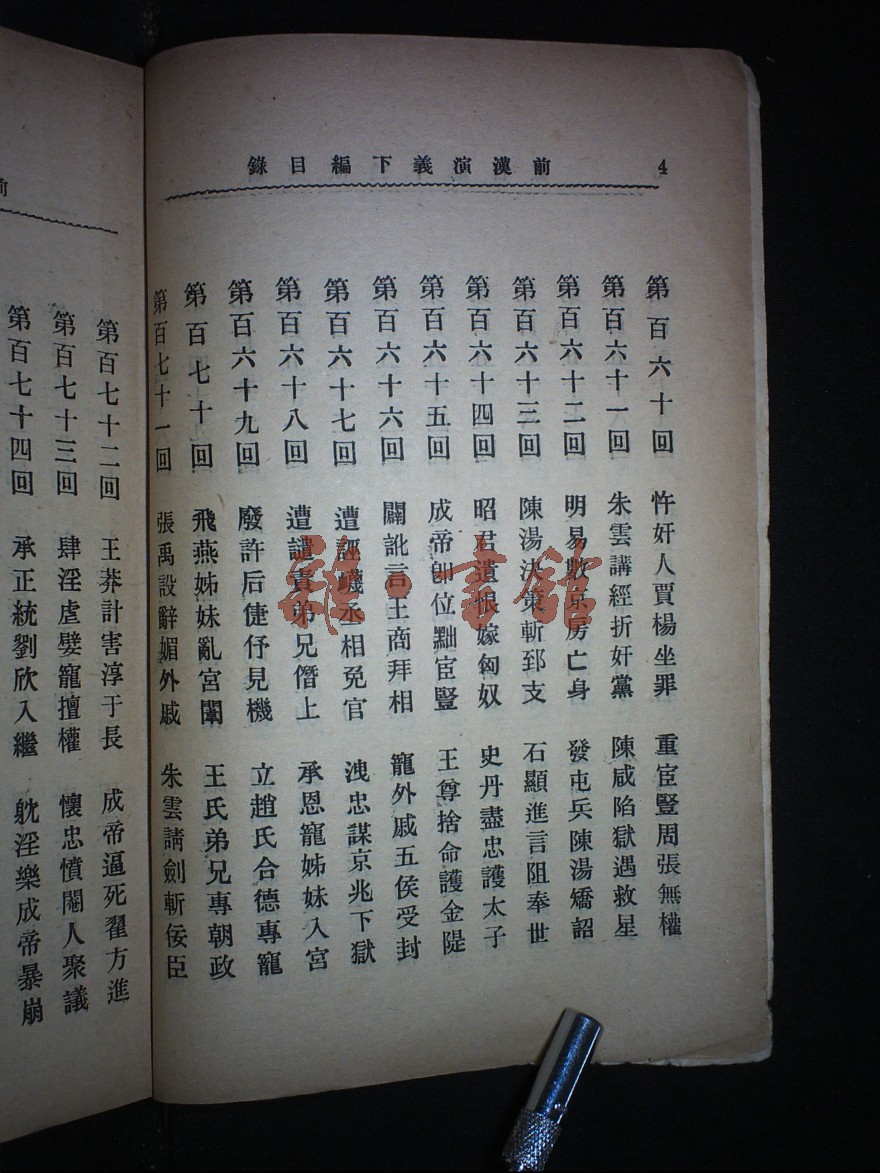 前漢演義下編目錄 4
第百六十回 忤奸人賈楊坐罪 重宦豎周張無權
第百六十一回 朱雲講經折奸黨 陳咸陷獄遇救星
第百六十二回 明易數京房亡身 發屯兵陳湯矯詔
第百六十三回 陳湯決策斬郅支 石顯進言阻奉世
第百六十四回 昭君遺恨嫁匈奴 史丹盡忠護太子
第百六十五回 成帝卽位黜宦豎 王尊捨命護金隄
第百六十六回 闢訛言王商拜相 寵外戚五侯受封
第百六十七回 遭誣衊丞相免官 洩忠謀京兆下獄
第百六十八回 遭譴責弟兄僭上 承恩寵姊妹入宮
第百六十九回 廢許后倢伃見機 立趙氏合德專寵
第百七十回 飛燕姊妹亂宮闈 王氏弟兄專朝政
第百七十一回 張禹設辭媚外戚 朱雲請劍斬佞臣
第百七十二回 王莽計害淳于長 成帝逼死翟方進
第百七十三回 肆淫虐嬖寵擅權 懷忠憤閹人聚議
第百七十四回 承正統劉欣入繼 躭淫樂成帝暴崩
書館